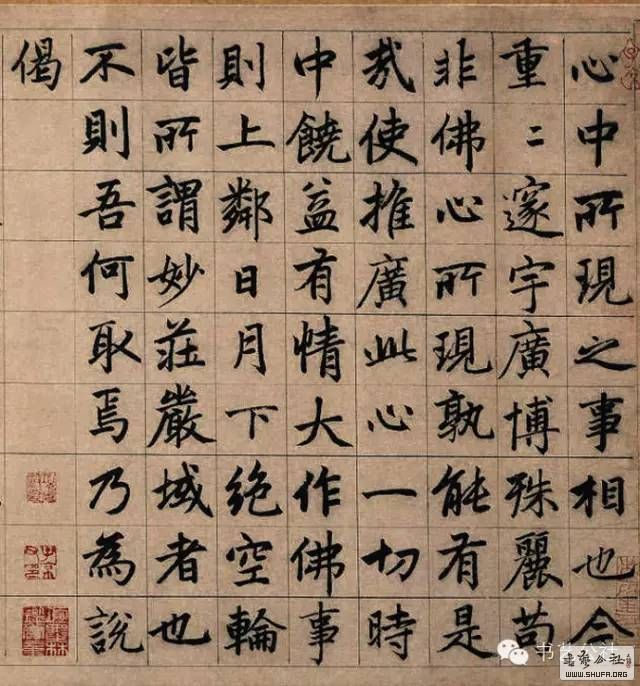 心中所現之事相也今
重二邃宇廣博殊麗苟
非佛心所現孰能有是
哉使推廣此心一切時
中饒益有情大作佛事
則上鄰日月下絶空輪
皆所謂妙莊嚴域者也
不則吾何取焉乃為說
偈
书艺公社
書藝公社
WWW.SHUFA.ORG